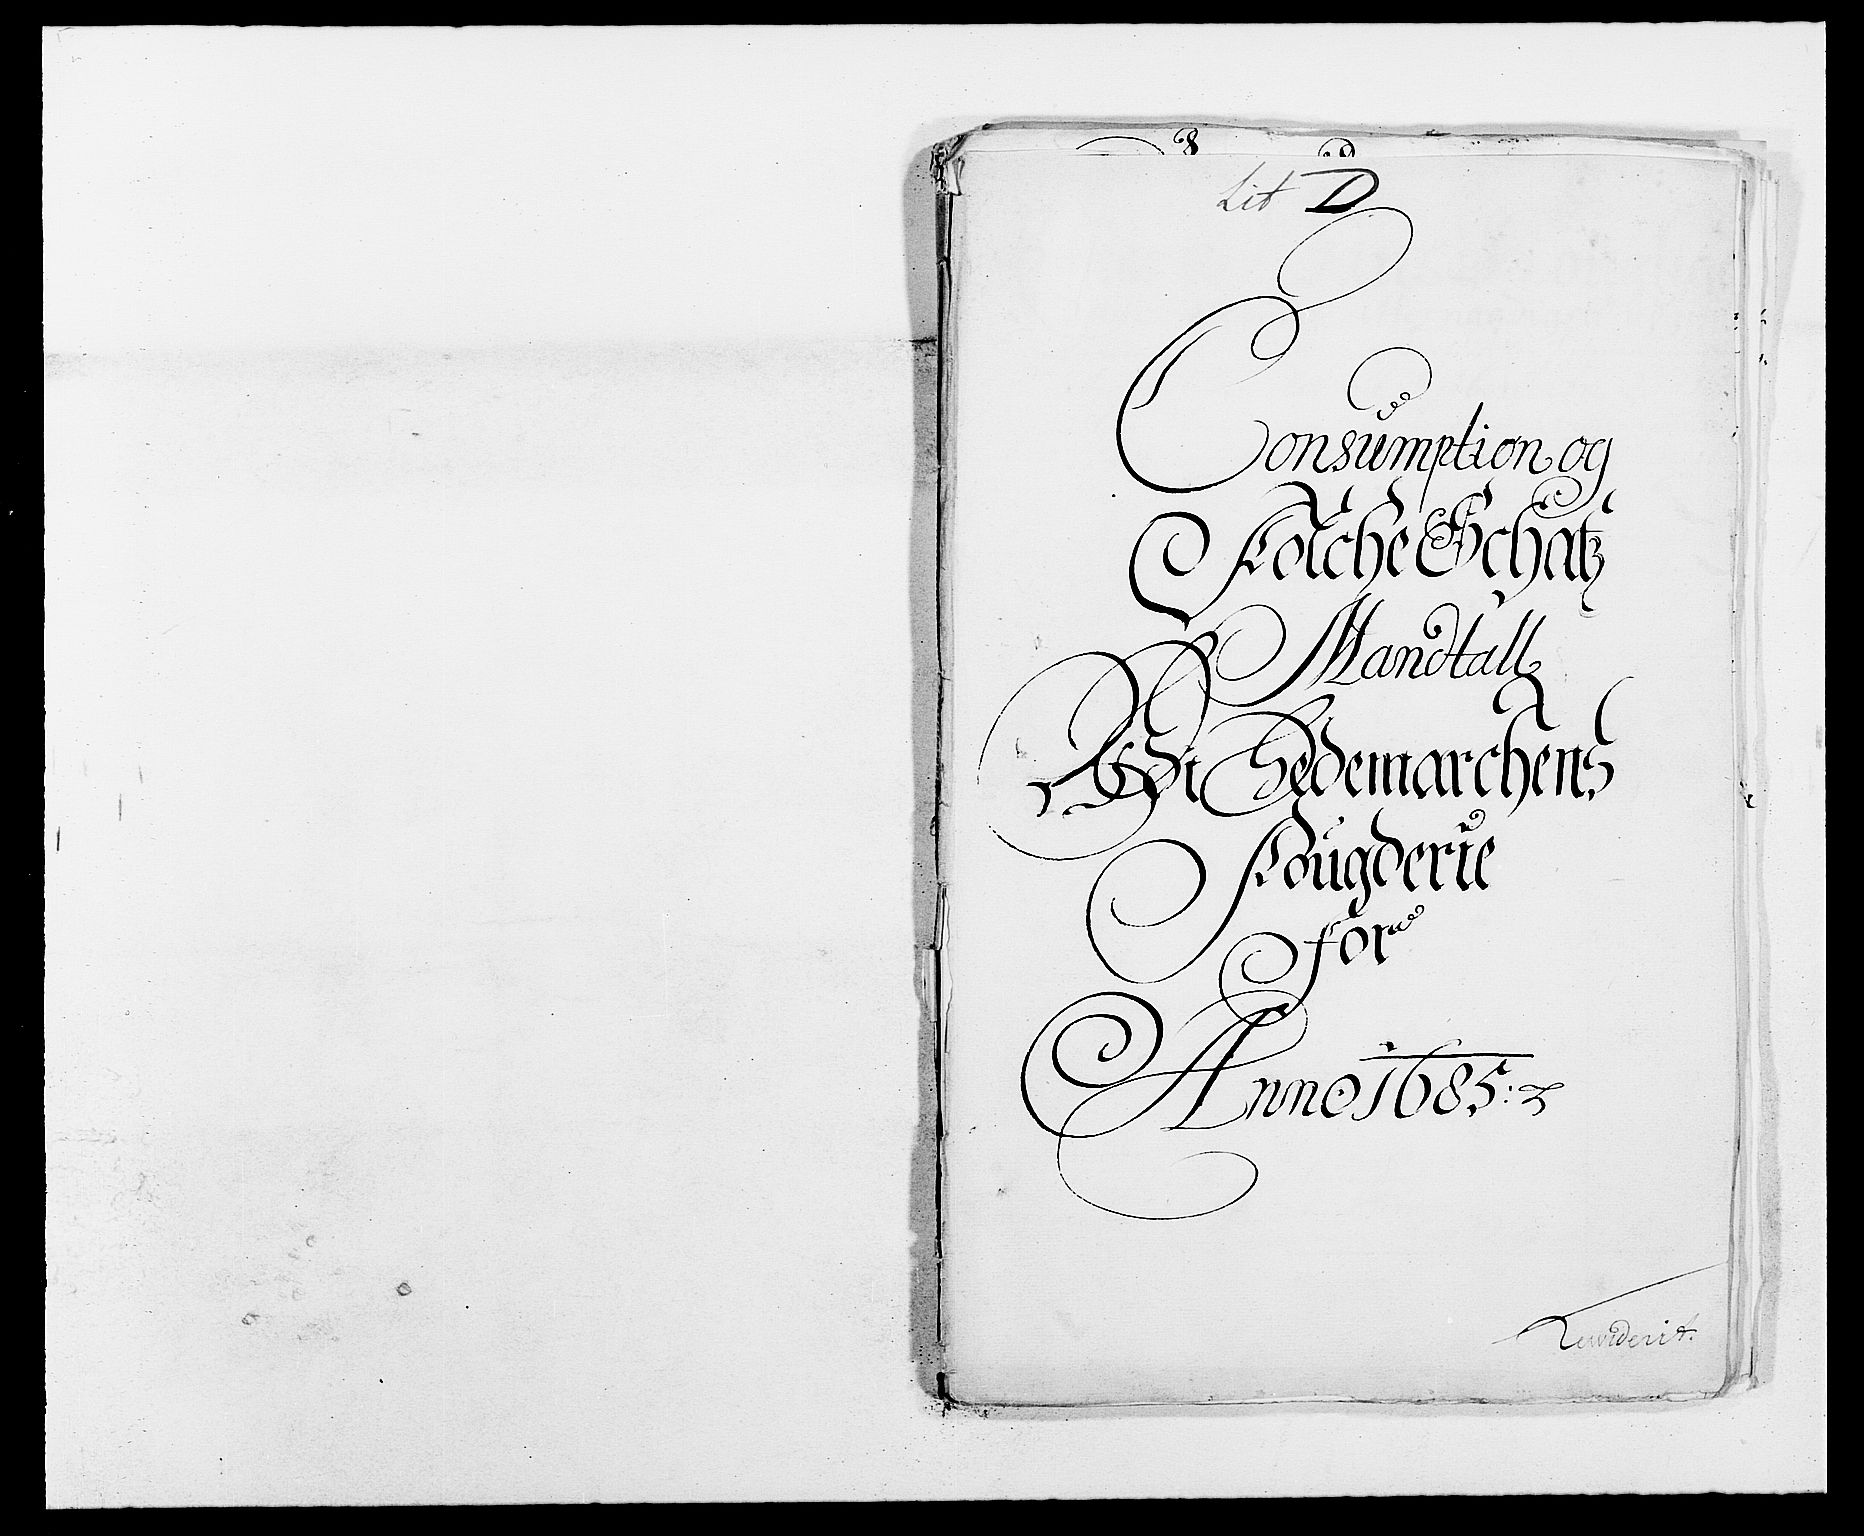 Lit D
Consumption og
Folche Schatz
Mandtall
Udi Hedemarchens
Fougderie
for
Anno 1685:
Rewiderit.